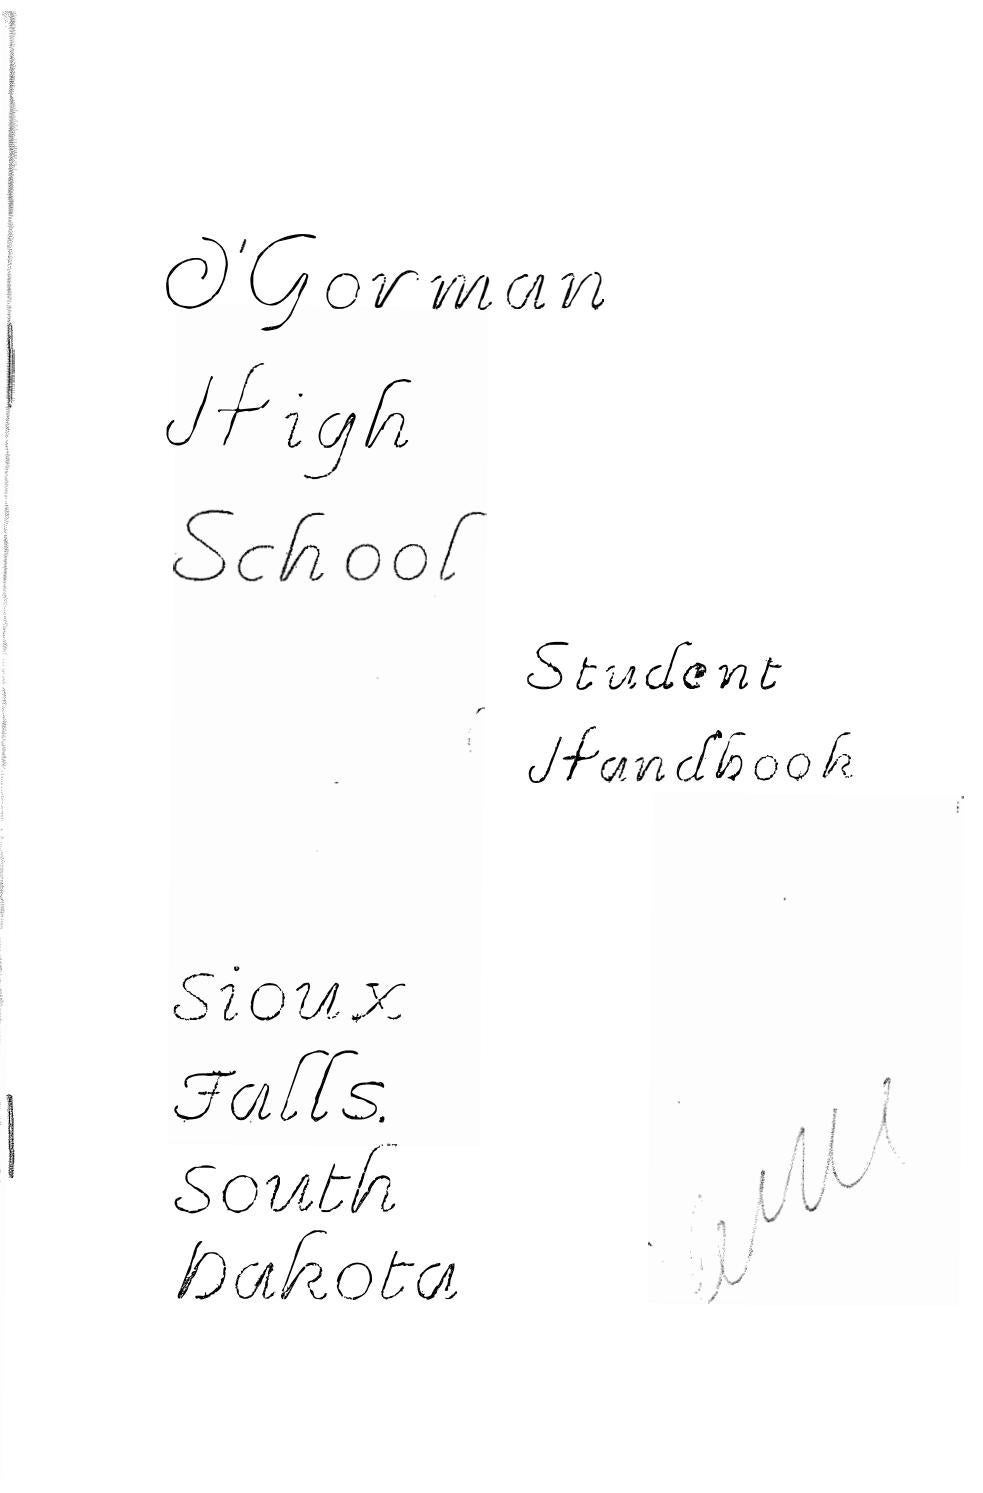 O'Gorman
High
School
Student
Handbook
Sioux
Falls.
South
Dakota